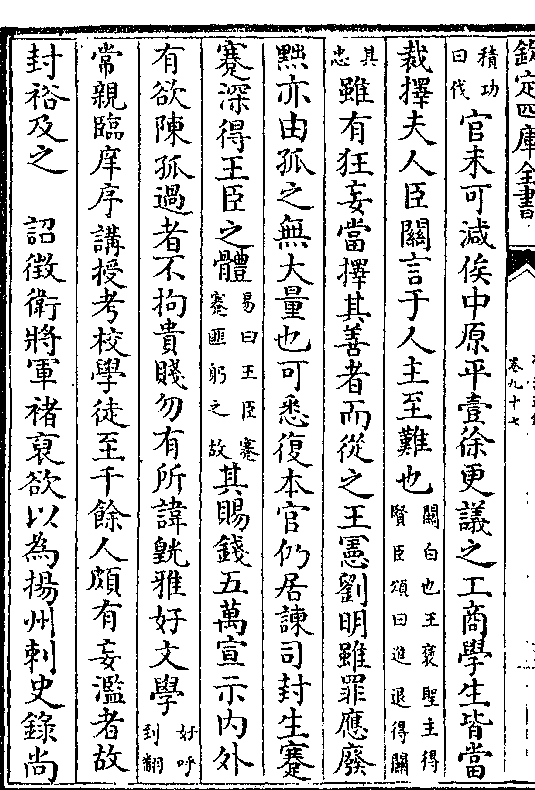 欽定四庫全書
卷九十七
積功曰伐官未可減俟中原平壹徐更議之工商學生皆當
裁擇夫人臣關言于人主至難也關白也王褒聖主得賢臣頌曰進退得關
其忠雖有狂妄當擇其善者而從之王憲劉明雖罪應廢
黜亦由孤之無大量也可悉復本官仍居諫司封生蹇
蹇深得王臣之體易曰王臣蹇蹇匪躬之故其賜錢五萬宣示内外
有欲陳孤過者不拘貴賤勿有所諱皝雅好文學好呼到翻
常親臨庠序講授考校學徒至千餘人頗有妄濫者故
封裕及之　詔徵衛將軍褚裒欲以為揚州刺史錄尚